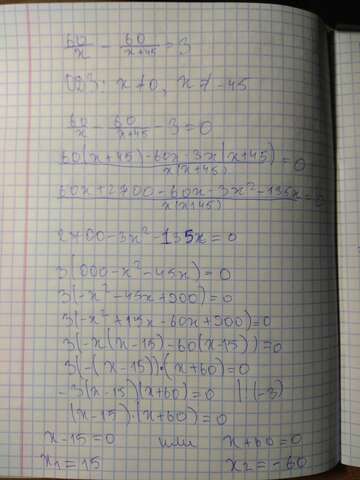 60/x - 60/x+45 = 3
ОДЗ: x ≠ 0, x ≠ -45
60/x - 60/x+45 - 3 = 0
60(x+45)-60x-3x(x+45)/x(x+45) = 0
60x+2700-60x-3x²-135x/x(x+45) = 0
2700-3x²-135x = 0
3(900-x²-45x) = 0
3(-x²-45x+900) = 0
3(-x²+15x-60x+900) = 0
3(-x(x-15)-60(x-15)) = 0
3(-(x-15))·(x+60) = 0
-3(x-15)(x+60) = 0 | (-3)
(x-15)·(x+60) = 0
x-15 = 0 или x+60 = 0
x₁ = 15 x₂ = -60